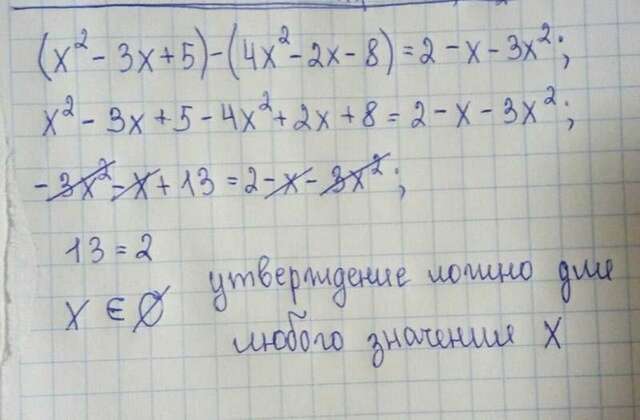 (x² - 3x + 5) - (4x² - 2x - 8) = 2 - x - 3x²;
x² - 3x + 5 - 4x² + 2x + 8 = 2 - x - 3x²;
- 3x² - x + 13 = 2 - x - 3x²;
13 = 2
x ∈ ∅ утверждение ложно для
любого значения x